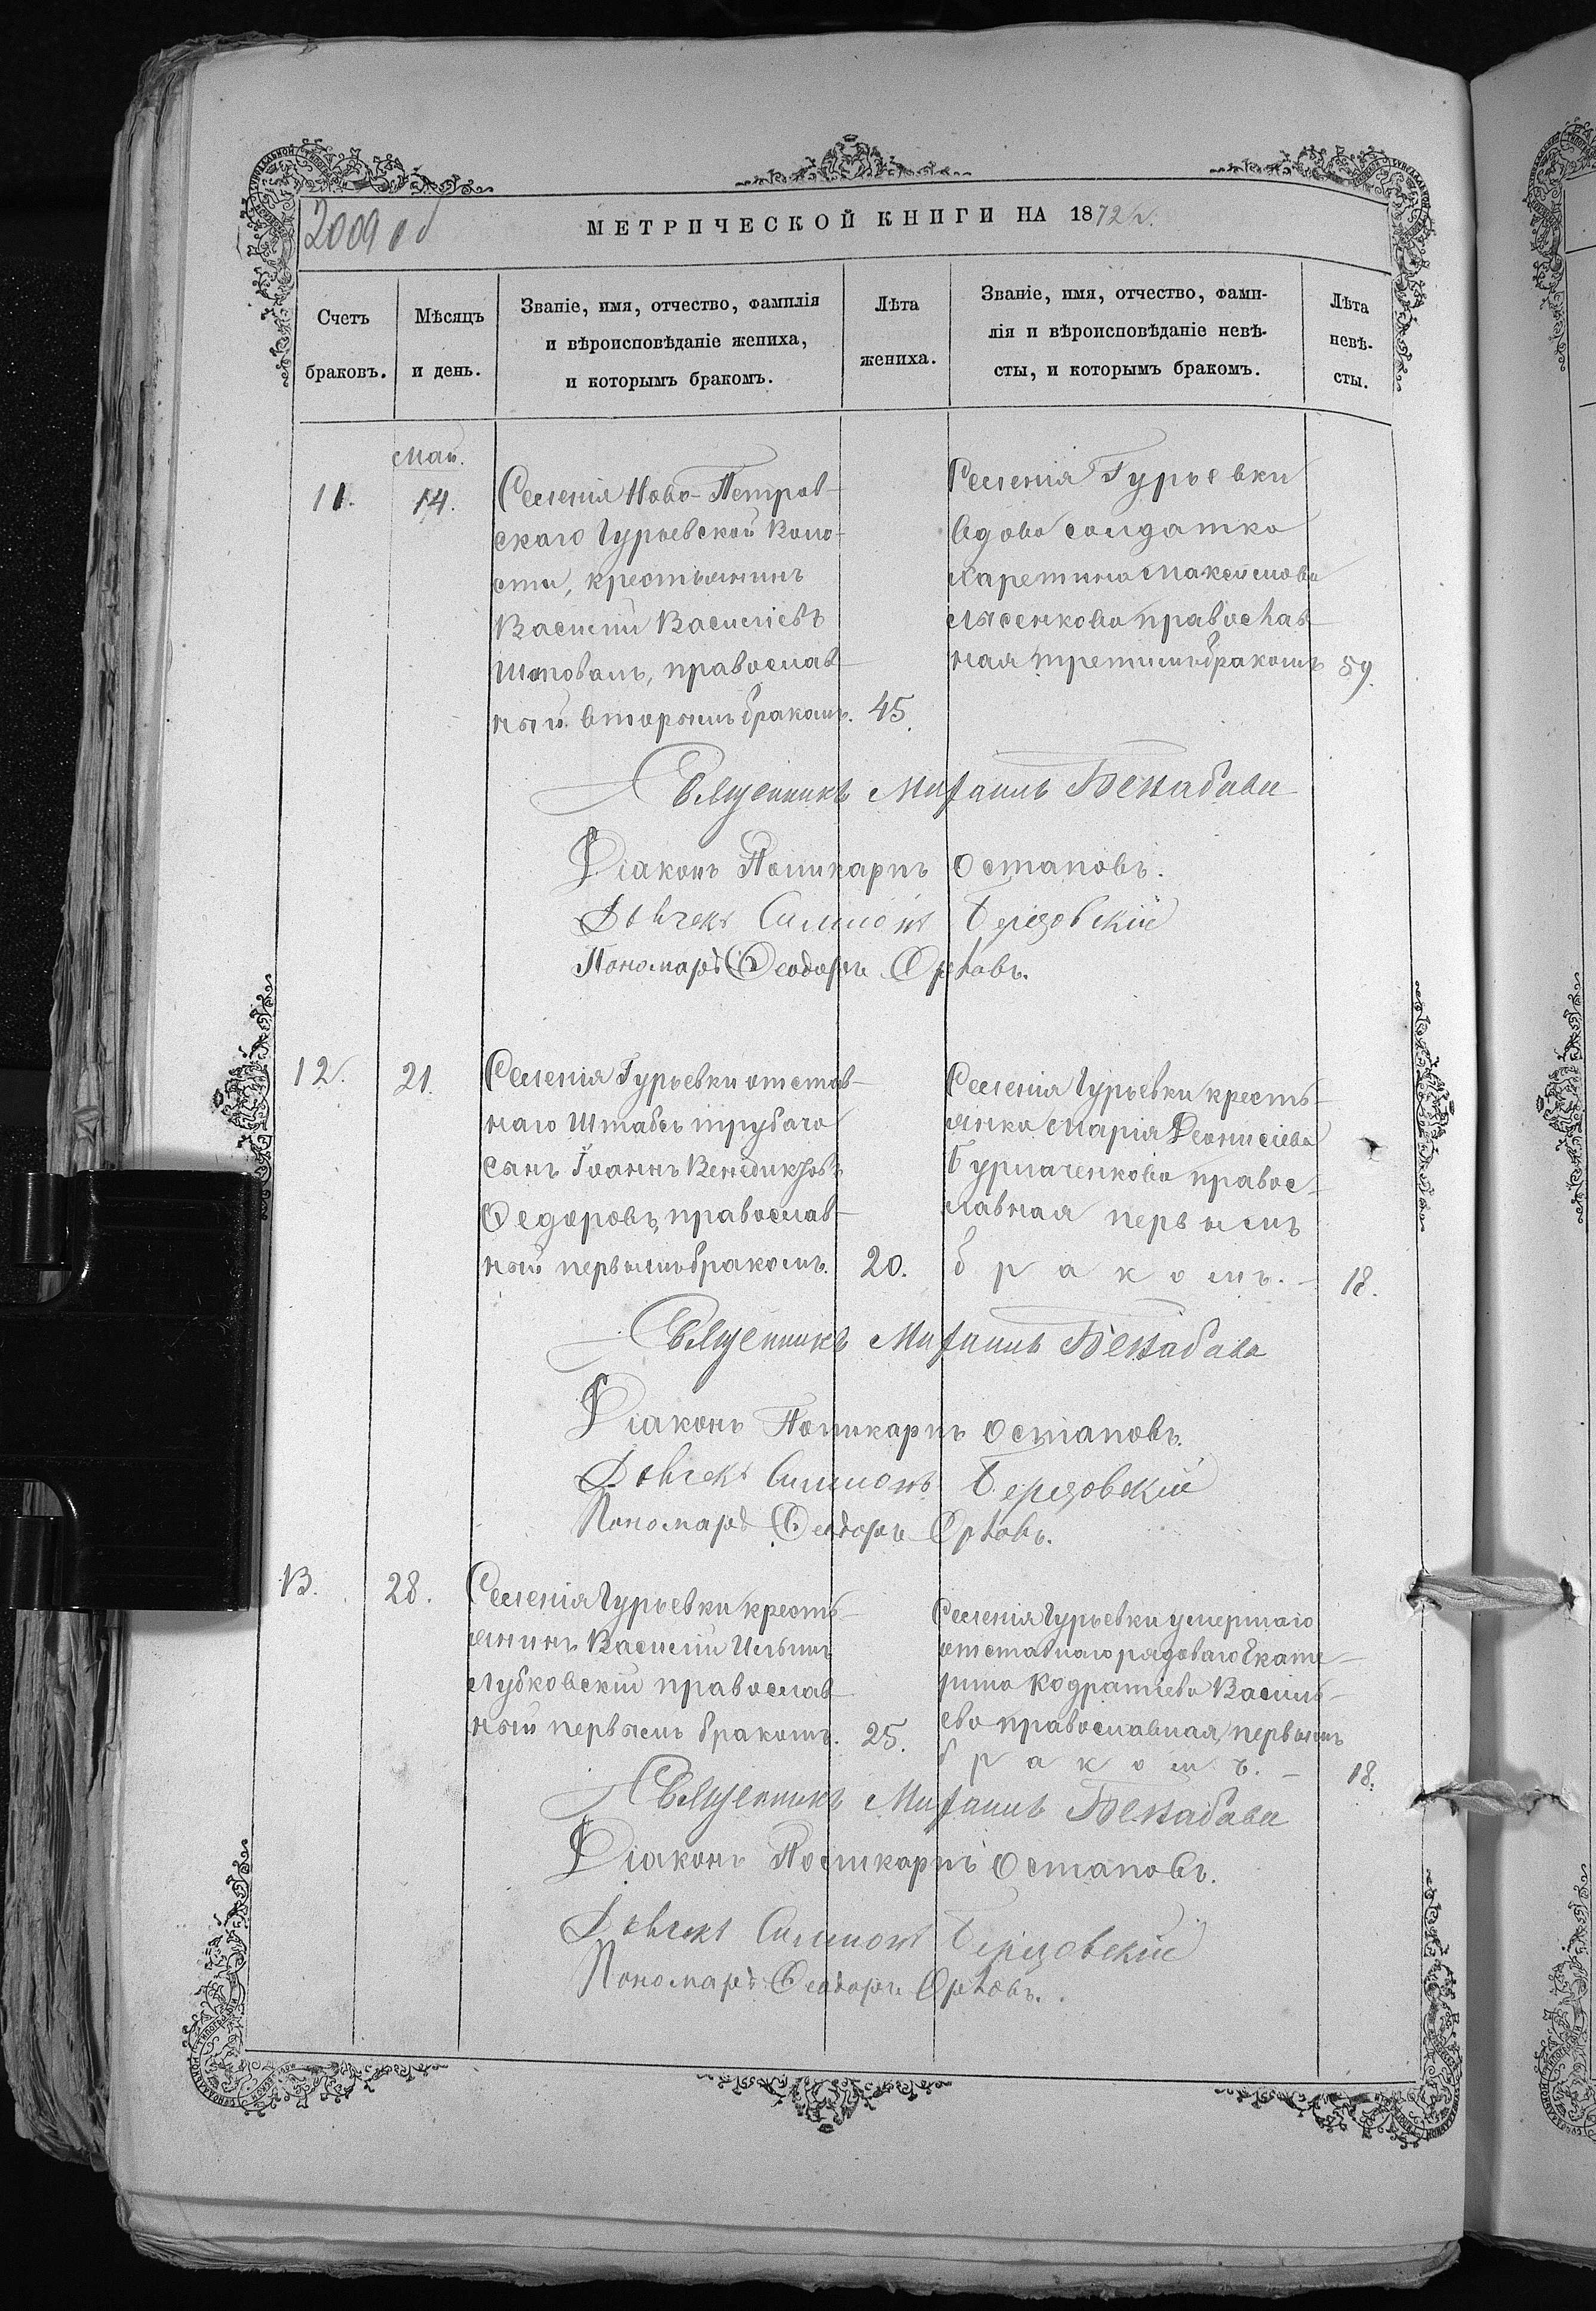 2009 об
МЕТРИЧЕСКОЙ КНИГИ НА 1872 г.
Счетъ браковъ.
Мѣсяцъ и день.
Званіе, имя, отчество, фамилія
и вѣроисповѣданіе жениха,
и которымъ бракомъ.
Лѣта
жениха.
Званіе, имя, отчество, фами-
лія и вѣроисповѣданіе невѣ-
сты, и которымъ бракомъ.
Лѣта
невѣ-
сты.
Май.
11.
14.
Селенія Ново-Петров-
скаго Гурьевской Воло-
сти, крестьянинъ
Василій Василіевъ
Шаповалъ, православ-
ный вторымъ бракомъ.
45.
Селенія Гурьевки
вдова солдатка
Харетина Максимова
Лысенкова православ-
ная третимъ бракомъ
59.
Священникъ Михаилъ
Діаконъ Поликарпъ Остаповъ.
Дьячекъ Симеонъ Березовскій
Пономарь Ѳеодоръ Орловъ.
12.
21.
Селенія Гурьевки отстав-
наго Штабъ трубача
сынъ Іоаннъ Венедиктовъ
Ѳедоровъ, православ-
ный первымъ бракомъ.
20.
Селенія Гурьевки кресть-
янка Марія Деонисіева
Бурлаченкова правос-
лавная первымъ
бракомъ.
18.
Священникъ Михаилъ
Діаконъ Поликарпъ Остаповъ.
Дьячекъ Симеонъ Березовскій
Пономарь Ѳеодоръ Орловъ.
13.
28.
Селенія Гурьевки кресть-
янинъ Василій Ильинъ
Лубковскій православ-
ный первымъ бракомъ.
25.
Селенія Гурьевки умершаго
отставнаго рядоваго Екате-
рина Кодратіева Василь-
ева православная первымъ
бракомъ.
18.
Священникъ Михаилъ
Діаконъ Поликарпъ Остаповъ.
Дьячекъ Симеонъ Березовскій
Пономарь Ѳеодоръ Орловъ.